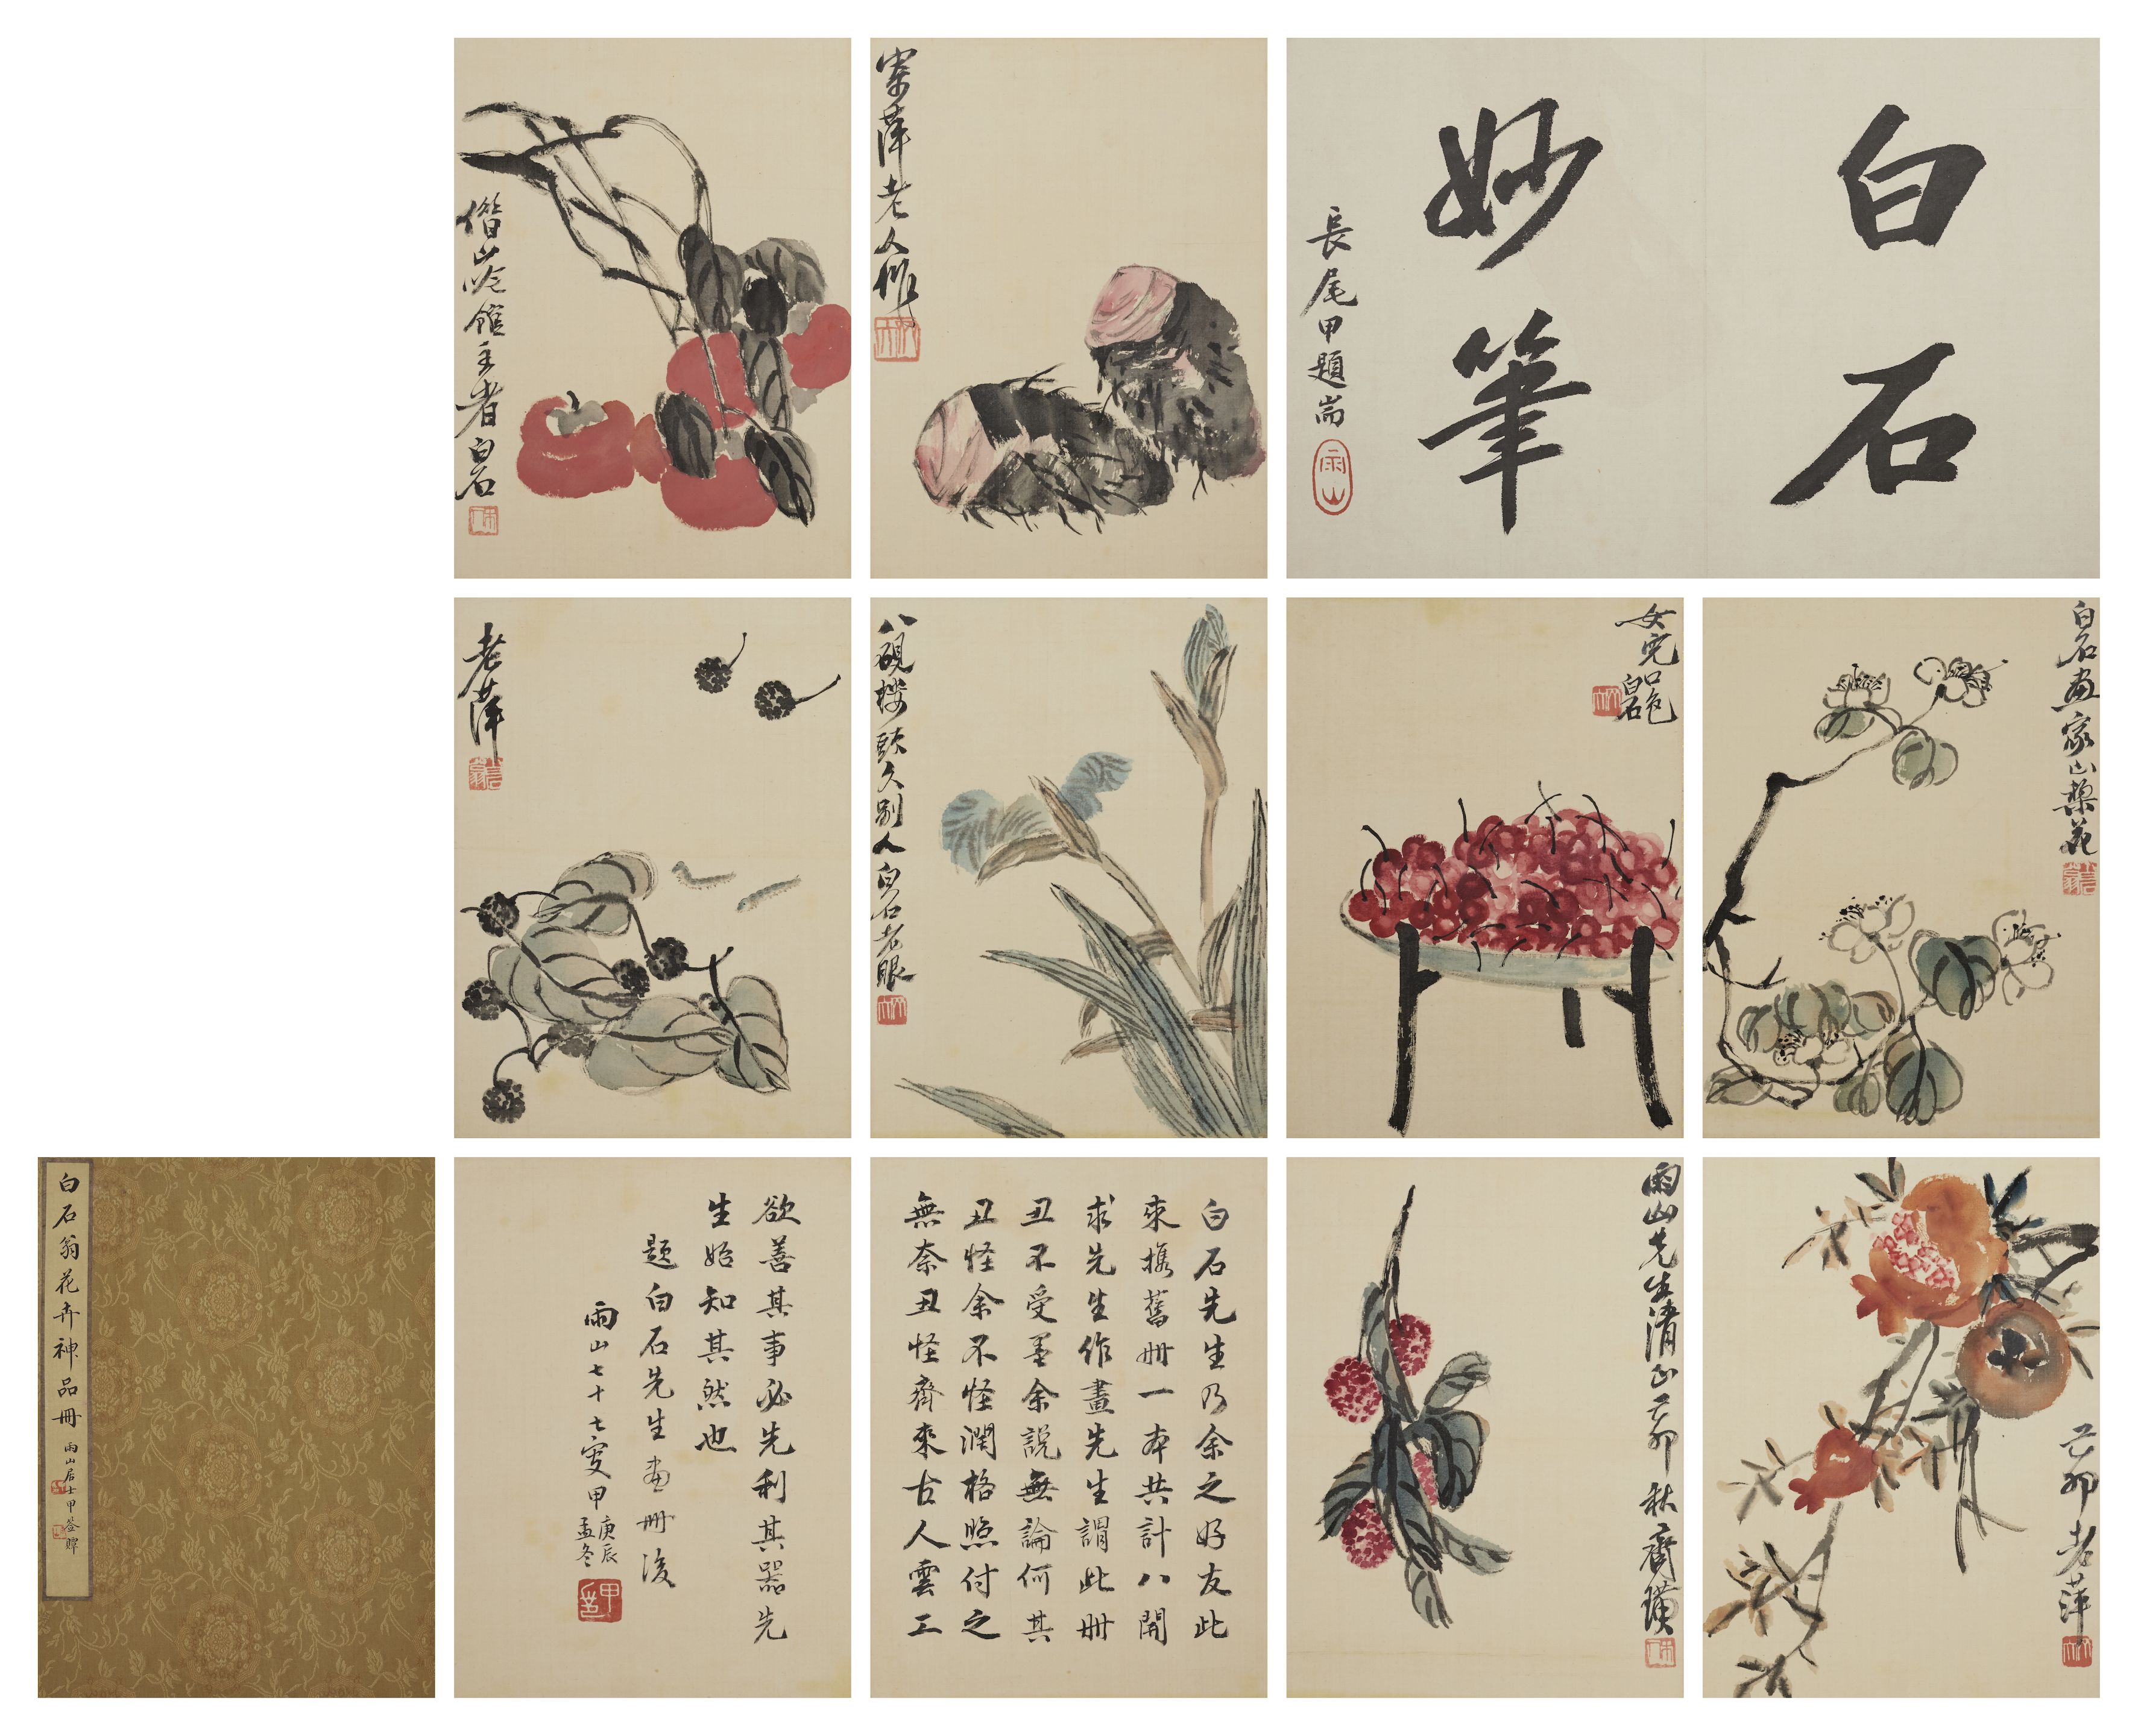 白石
妙筆
長尾甲題耑
雨山
寄萍老人作
借山吟館主者白石
白石畫家山梨花
女兒口色
白石
八硯樓頭久別人白石老眼
老萍
己卯老萍
雨山先生清正己卯秋齊璜
白石先生乃余之好友此
來攜舊冊一本共計八開
求先生作畫先生謂此冊
丑不受墨余說無論何其
丑怪余不怪潤格照付之
無奈丑怪齊來古人雲工
欲善其事必先利其器先
生始知其然也
題白石先生畫冊後
雨山七十七叟甲
庚辰
孟冬
白石翁花卉神品冊
雨山居士甲簽